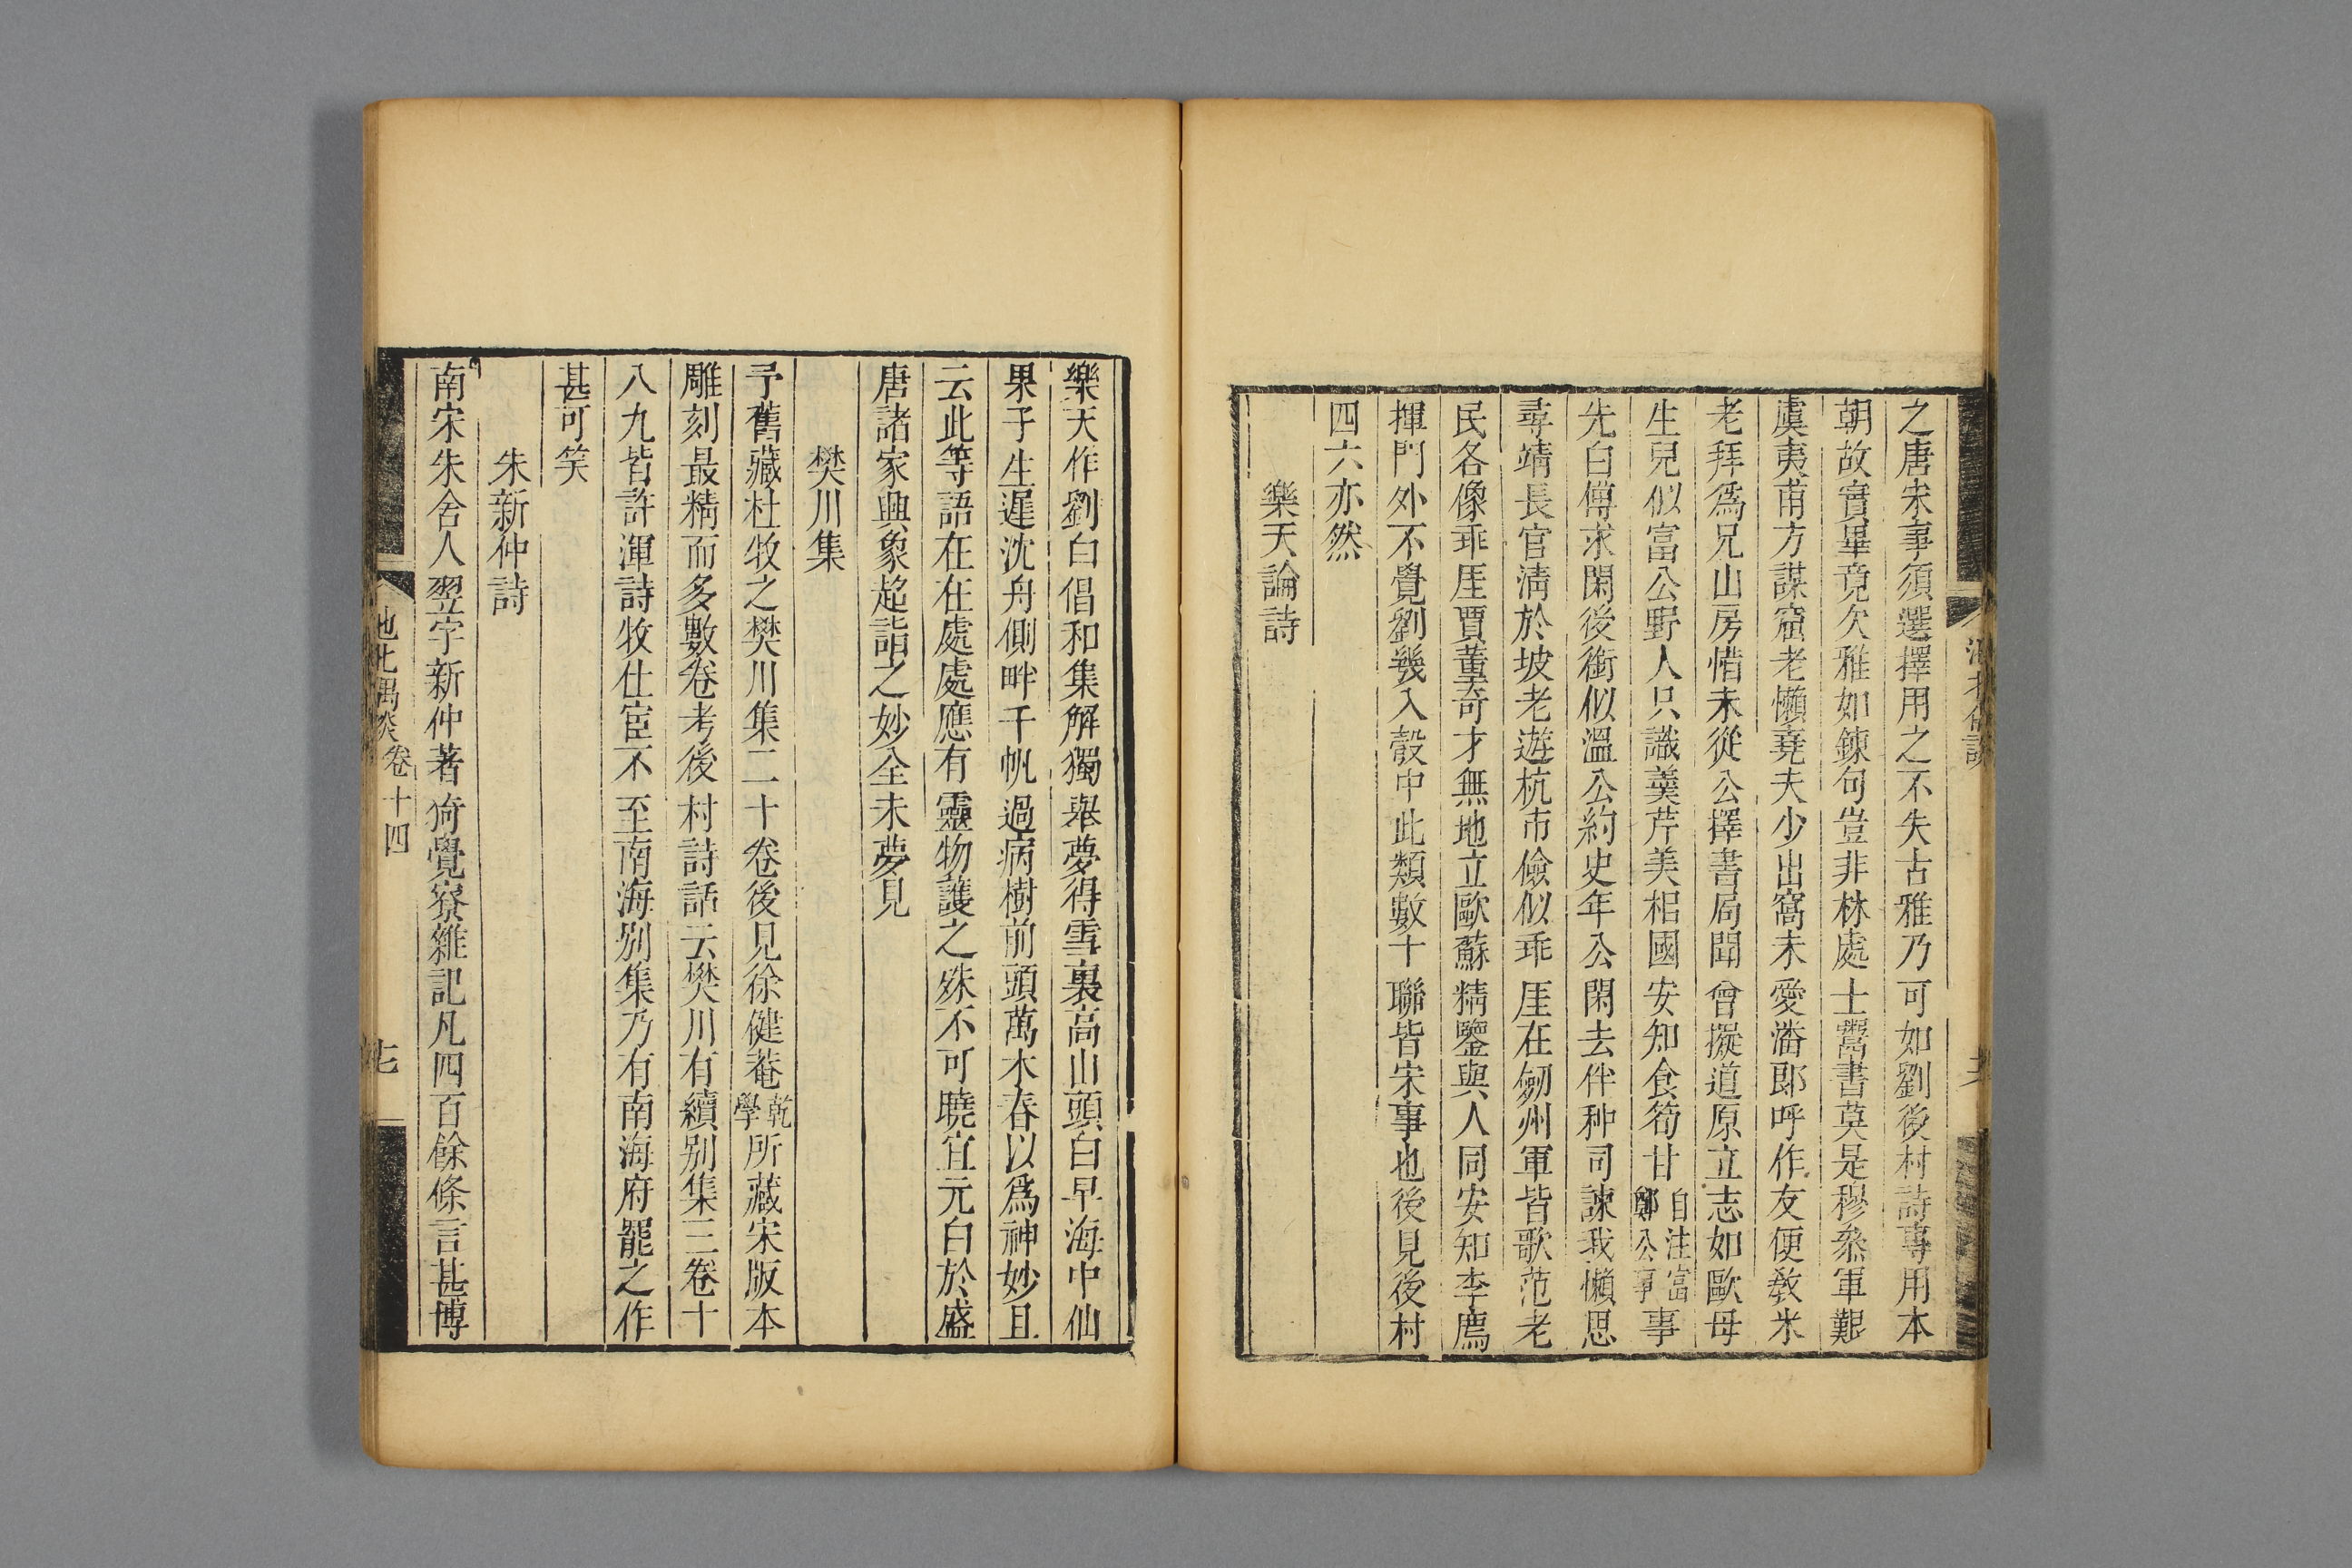 之唐宋事須選擇用之不失古雅乃可如劉後村詩專用本
朝故實畢竟欠雅如鍊句豈非林處士鬻書莫是穆叅軍艱
虞夷甫方謀窟老懶堯夫少出窩未愛潘郎呼作友便敎米
老拜爲兄山房惜未從公擇書局聞曾擬道原立志如歐母
生兒似富公野人只識羹芹美相國安知食筍甘自注富鄭公事事
先白傅求閑後銜似溫公約史年公閑去伴种司諫我懶思
尋靖長官淸於坡老遊杭市儉似乖厓在劒州軍皆歌范老
民各像乖厓賈董奇才無地立歐蘇精鑒與人同安知李廌
揮門外不覺劉幾入彀中此類數十聯皆宋事也後見後村
四六亦然
樂天論詩
樂天作劉白倡和集解獨舉夢得雪裏高山頭白早海中仙
果子生遲沈舟側畔千帆過病樹前頭萬木春以爲神妙且
云此等語在在處處應有靈物護之殊不可曉宜元白於盛
唐諸家興象超詣之妙全未夢見
樊川集
予舊藏杜牧之樊川集二十卷後見徐健菴乾學所藏宋版本
雕刻最精而多數卷考後村詩話云樊川有續别集三卷十
八九皆許渾詩牧仕宦不至南海别集乃有南海府罷之作
甚可笑
朱新仲詩
南宋朱舍人翌字新仲著猗覺寮雜記凡四百餘條言甚博
池北偶談 卷十四